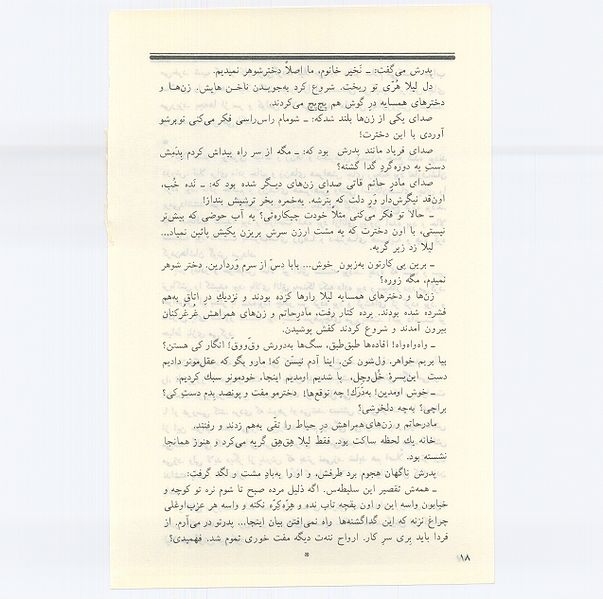 پدرش می‌گفت: ــ نخیر خانوم، ما اصلاً دخترشوهر نمیدیم.
دل لیلا هُرّی تو ریخت. شروع کرد به‌جویدن ناخن هایش. زن‌ها و
دخترهای همسایه درِ گوش هم پچ‌پچ می‌کردند.
صدای یکی از زن‌ها بلند شدکه: ــ شومام راس‌راسی فکر می‌کنی توبرشو
آوردی با این دخترت!
صدای فریاد مانند پدرش بود که: ــ مگه از سر راه پیداش کردم بدَمِش
دستِ یه دوره‌گردِ گدا گشنه؟
صدای مادرِ حاتم قاتی صدای زن‌های دیگر شده بود که: ــ نَده خُب،
اون‌قد نیگرش‌دار وَرِ دلت که بتُرشه. یه‌خمره بخر ترشیش بنداز!
ــ حالا تو فکر می‌کنی مثلاً خودت چیکاره‌ئی؟ یه آب حوضی که بیش‌تر
نیستی، با اون دخترت که یه مشت ارزن سرش بریزن یکیش پائین نمیاد...
لیلا زد زیر گریه.
ــ برین پی کارتون به‌زبونِ خوش... بابا دسّ از سرم وَردارین. دختر شوهر
نمیدم، مگه زوره؟
زن‌ها و دخترهای همسایه لیلا رارها کرده بودند و نزدیكِ درِ اتاق به‌هم
فشرده شده بودند. پرده کنار رفت، مادرِحاتم و زن‌های همراهش غُرغُرکنان
بیرون آمدند و شروع کردند کفش پوشیدن.
ــ واه‌واه‌واه! افاده‌ها طبق‌طبق، سگ‌ها به‌دورش وقّ‌ووق! انگار کی هستن؟
بیا بریم خواهر، ول‌شون کن. اینا آدم نیسّن که! مارو بگو که عقل‌مونو دادیم
دست این‌پسرهٔ خُل‌وچِل، پا شدیم اومدیم اینجا، خودمونو سبك کردیم.
ــ خوش اومدین! به‌دَرَك! چه توقع‌ها! دخترمو مفت و پونصد بدم دستِ کی؟
براچی؟ به‌چه دلخوشی؟
مادرحاتم و زن‌های همراهش درِ حیاط را تقّی به‌هم زدند و رفتند.
خانه یك لحظه ساکت بود. فقط لیلا هِق‌هِق گریه می‌کرد و هنوز همانجا
نشسته بود.
پدرش ناگهان هجوم برد طرفش، و او را به‌بادِ مشت و لگد گرفت:
ــ همه‌ش تقصیر این سلیطه‌س. اگه ذلیل مرده صبح تا شوم نره تو کوچه و
خیابون واسه این و اون بقچه تاب نده و هِرّه‌کِرّه نکنه و واسه هر عزب‌اوغلی
چراغ نزنه که این گداگشنه‌ها راه نمی‌افتن بیان اینجا... پدرتو در می‌آرم. از
فردا باید بری سر کار. ارواح ننه‌ت دیگه مفت خوری تموم شد. فهمیدی؟
*
۱۸